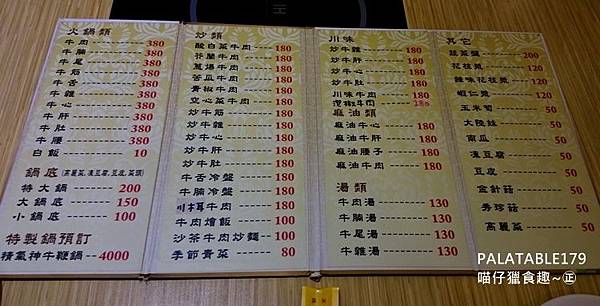 火鍋類
牛肉 380
牛腩 380
牛尾 380
牛筋 380
牛舌 380
牛雜 380
牛心 380
牛肝 380
牛肚 380
牛腰 380
白飯 10
鍋底(高麗菜,凍豆腐,豆皮,菜頭)
特大鍋 200
大鍋底 150
小鍋底 100
特製鍋預訂
精氣神牛鞭鍋 4000
炒類
酸白菜牛肉 180
芥蘭牛肉 180
蔥爆牛肉 180
苦瓜牛肉 180
青椒牛肉 180
空心菜牛肉 180
炒牛筋 180
炒牛雜 180
炒牛心 180
炒牛肝 180
炒牛肚 180
牛舌冷盤 180
牛腩冷盤 180
川木耳牛肉 180
牛肉燴飯 100
沙茶牛肉炒麵 100
季節青菜 80
川味
炒牛雜 180
炒牛肝 180
炒牛心 180
炒牛肚 180
川味牛肉 180
牛肉 180
麻油類
麻油牛心 180
麻油牛肝 180
麻油腰子 180
麻油牛肉 180
湯類
牛肉湯 130
牛腩湯 130
牛尾湯 130
牛雜湯 130
其它
蔬菜盤 200
花枝羹 120
辣味花枝羹 120
蝦仁羹 120
玉米筍 50
大陸妹 50
南瓜 50
凍豆腐 50
豆皮 50
金針菇 50
秀珍菇 50
高麗菜 50
PALATABLE179
喵仔獵食趣~㊣